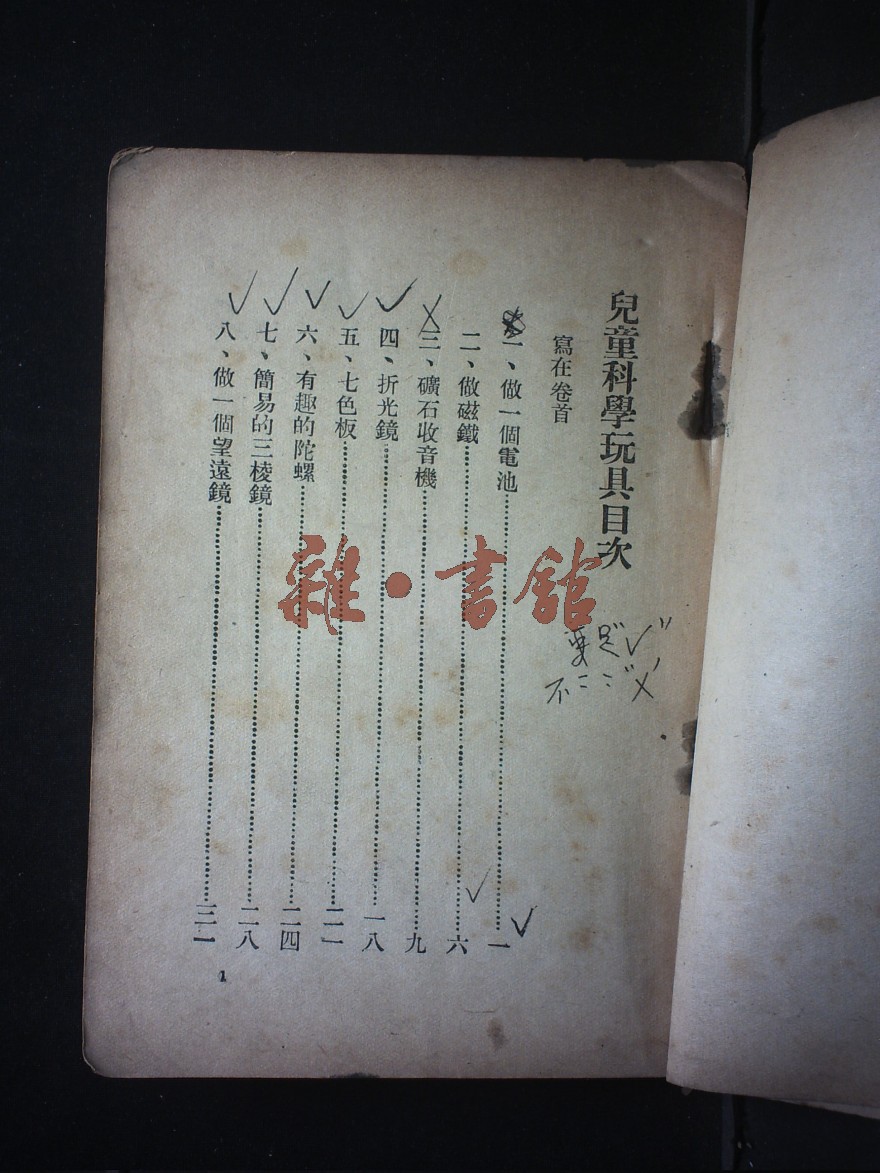 兒童科學玩具目次
寫在卷首
一、做一個電池……一
二、做磁鐵……六
三、礦石收音機……九
四、折光鏡……一八
五、七色板……二一
六、有趣的陀螺……二四
七、簡易的三棱鏡……二八
八、做一個望遠鏡……三一
1
雜·書館